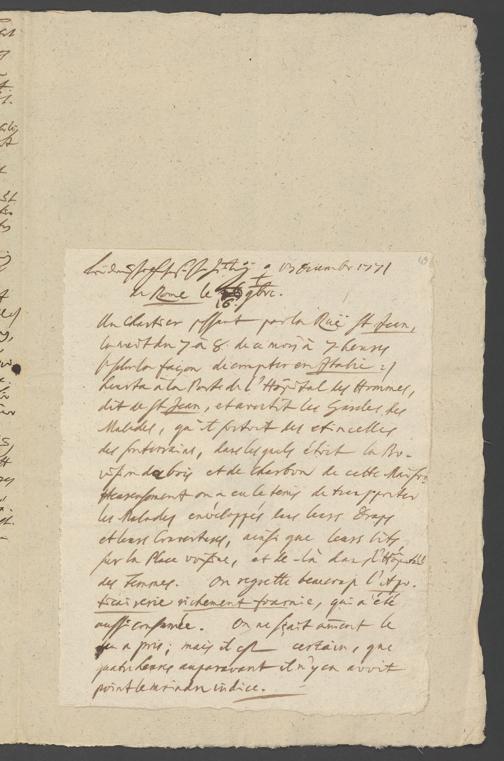 9 December 1771
de Rome le 16 9bre.
Un Chartier passant par la Ruë St Jean,
la nuit du 7 à 8. de ce mois à 7 heures
selon la façon de compter en Italie
heurta à la Porte de l'Hôpital des Hommes,
dit de St Jean, et avertit les Gardes des
Malades, qu'il sortoit des etincelles
des souterrains, dans lesquels étoit la Pro-
vision de bois et de charbon de cette Maison
Heureusement on a eu le tems de transporter
les Malades enveloppés dans leurs Draps
et leurs Couvertures, ainsi que leurs lits
sur la Place voisine, et de-là dans l'Hôpital
des Femmes. On regrette beaucoup l'Apo-
ticairerie richement fournie, qui a été
aussi consumée. On ne sçait coment le
feu a pris; mais il est certain, que
quatre heures auparavant il n'y en avoit
point le moindre indice.